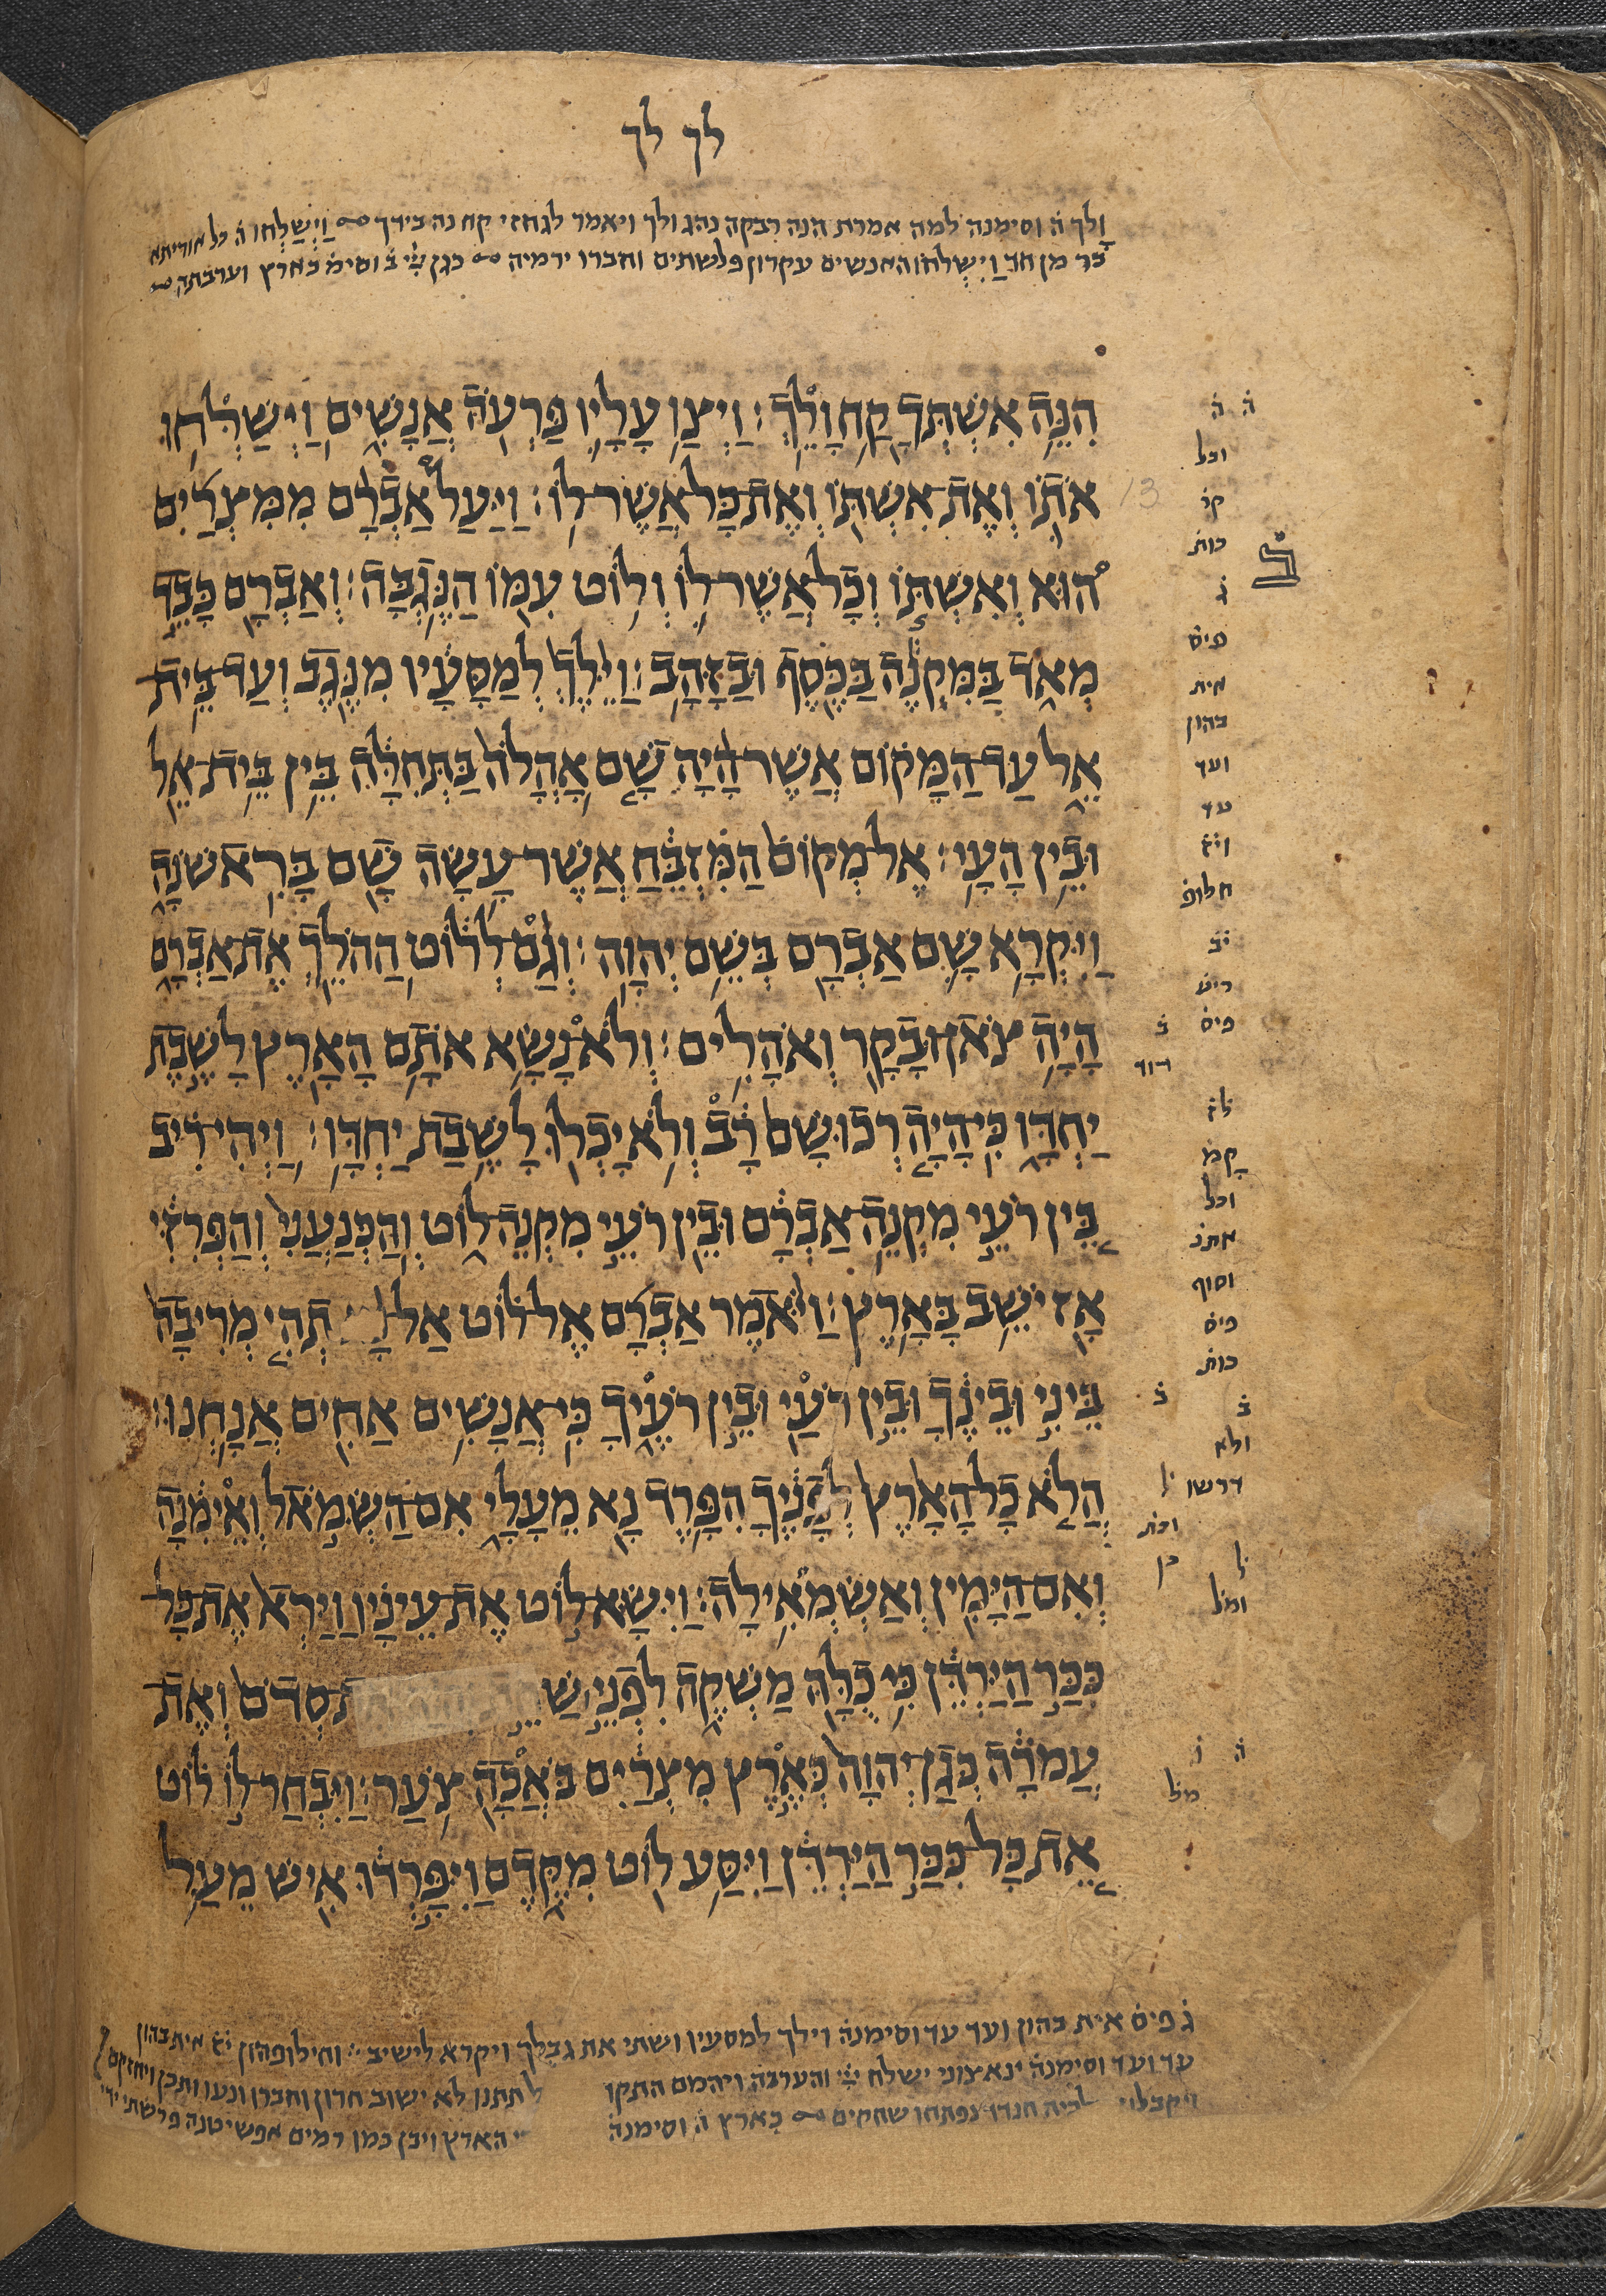 לך לך
ולך ה וסימנה למה אמרת הנה רבקה נהג ולך ויאמר לגחזי קח נה בידך וישלחו ה כל אוריתא
בר מן חד וישלחו האנשים עקרון פלשתים וחברו ירמיה כגן ב וסימ בארץ וערבתה
הנה אשתך קח ולך׃ ויצו עליו פרעה אנשים וישלחו
אתו ואת אשתו ואת כל אשר לו׃ ויעל אברם ממצרים
13
הוא ואשתו וכל אשר לו ולוט עמו הנגבה׃ ואברם כבד
מאד במקנה בכסף ובזהב׃ וילך למסעיו מנגב ועד בית
אל עד המקום אשר היה שם אהלה בתחלה בין בית אל
ובין העי׃ אל מקום המזבח אשר עשה שם בראשנה
ויקרא שם אברם בשם יהוה׃ וגם ללוט ההלך את אברם
היה צאן ובקר ואהלים׃ ולא נשא אתם הארץ לשבת
יחדו כי היה רכושם רב ולא יכלו לשבת יחדו׃ ויהי ריב
בין רעי מקנה אברם ובין רעי מקנה לוט והכנעני והפרזי
אז ישב בארץ׃ ויאמר אברם אל לוט אל תהי מריבה
ביני ובינך ובין רעי ובין רעיך כי אנשים אחים אנחנו׃
הלא כל הארץ לפניך הפרד נא מעלי אם השמאל ואימנה
ואם הימין ואשמאילה׃ וישא לוט את עיניו וירא את כל
ככר הירדן כי כלה משקה לפני ש סדם ואת
עמרה כגן יהוה כארץ מצרים באכה צער׃ ויבחר לו לוט
את כל ככר הירדן ויסע לוט מקדם ויפרדו איש מעל
ה ה
וכל
קו
כות
ג
פיס
אית
בהון
ועד
עד
ויג
חלופ
יב
ריש
פיס ב
דוד
קמ
וכל
אתנ
וסוף
פיס
כות
ב ב
ולא
דרשו ל
וכת
ל
ומל
ה ו
מל
ג פיס אית בהון ועד עד וסימנה וילך למסעיו ושתי את גבלך ויקרא לישיב וחילופהון יג אית בהון
עד ועד וסימנה ינאצוני ישלח והערבה ויהמם התקו לתתנו לא ישוב חרון וחברו ונעו ותכן ויחזקם
חנדו נפתחו שחקים בארץ ה וסימנה הארץ ויבן כמו רמים אפשיטנה פרשתי ידי